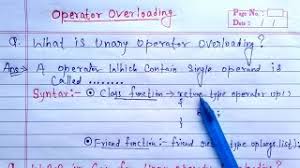 Operator Overloading
Page No.
Date
Q. What is Unary Operator Overloading?
Ans → A operator which contain single operand is
Called ........
Syntax:- ⊙ Class function → retrun type operator op()
{
};
⊙ Friend function :- friend retrun type op(arg list)